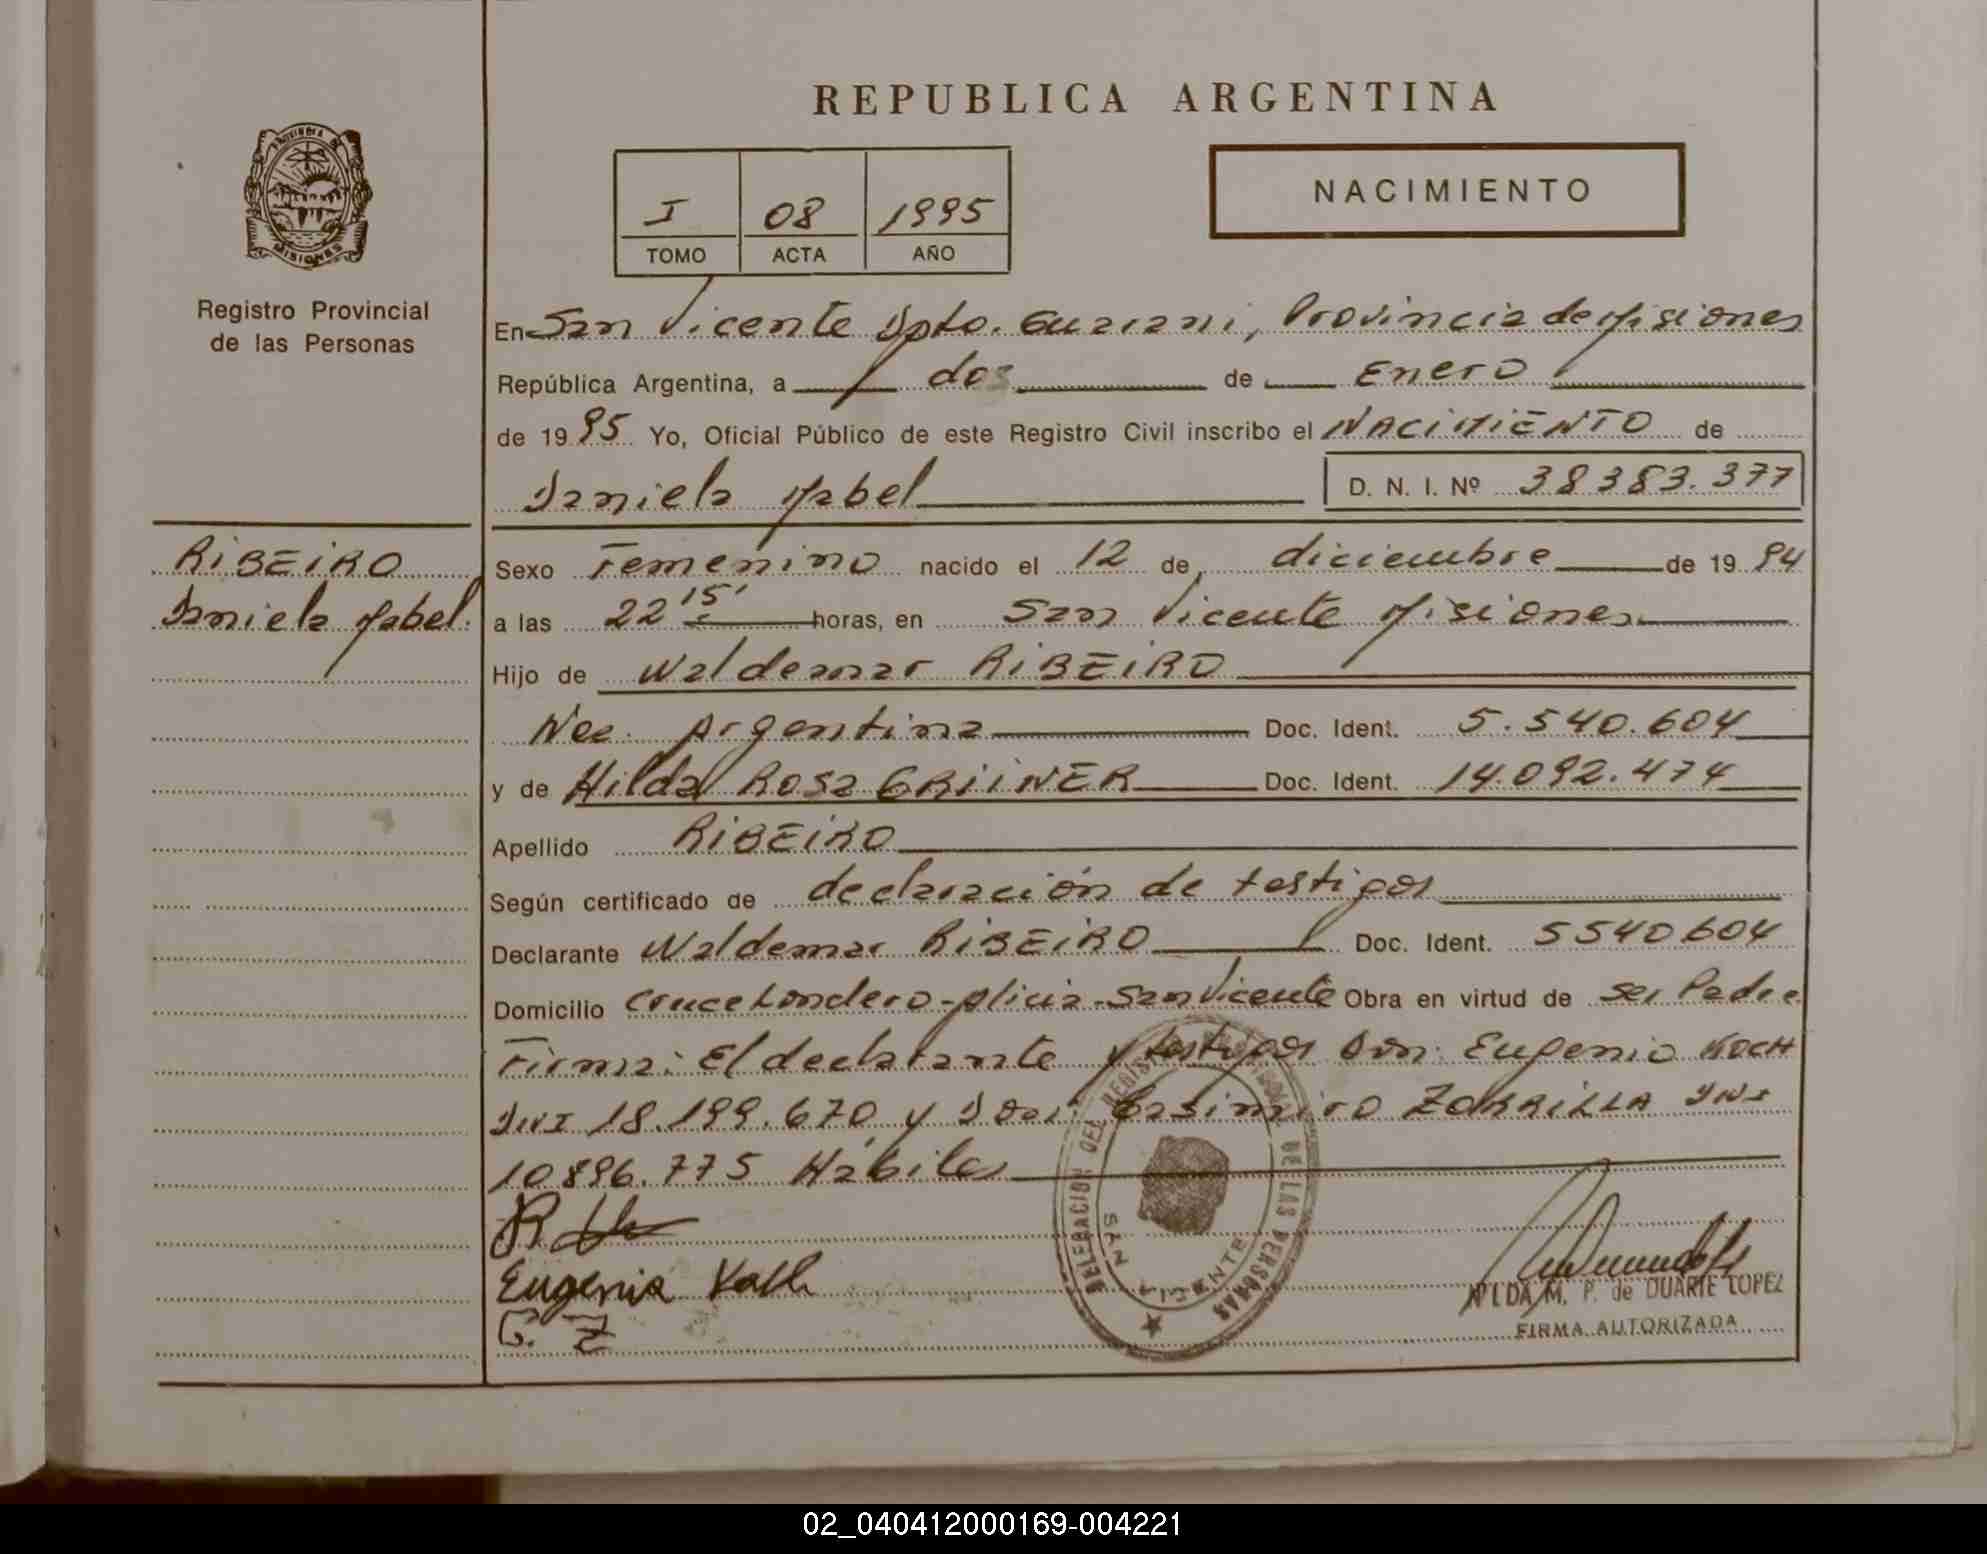 REPUBLICA ARGENTINA
PROVINCIA DE
MISIONES
Registro Provincial
de las Personas
I 08 1995
TOMO ACTA AÑO
NACIMIENTO
En San Vicente Dpto. Guarani, Provincia de Misiones
República Argentina, a dos de Enero
de 1995 Yo, Oficial Público de este Registro Civil inscribo el NACIMIENTO de
Daniela Mabel D. N. I. Nº 38383.377
RIBEIRO
Daniela Mabel.
Sexo Femenino nacido el 12 de diciembre de 1994
a las 22 15' horas, en San Vicente Misiones
Hijo de Waldemar RIBEIRO
Nac. Argentina Doc. Ident. 5.540.604
y de Hilda Rosa GRIINER Doc. Ident. 14.092.474
Apellido RIBEIRO
Según certificado de declaración de testigos
Declarante Waldemar RIBEIRO Doc. Ident. 5540604
Domicilio Cruce Londero-Alicia-San Vicente Obra en virtud de ser Padre
Firma: El declarante y testigos Don: Eugenio KOCH
DNI 18.199.670 y Don: Casimiro ZORRILLA DNI
10896.775 Hábiles
Eugenia
C. Z
DELEGACION DEL REGISTRO PROVINCIAL DE LAS PERSONAS
SAN VICENTE
NILDA M. P. de DUARTE LOPEZ
FIRMA AUTORIZADA
02_040412000169-004221